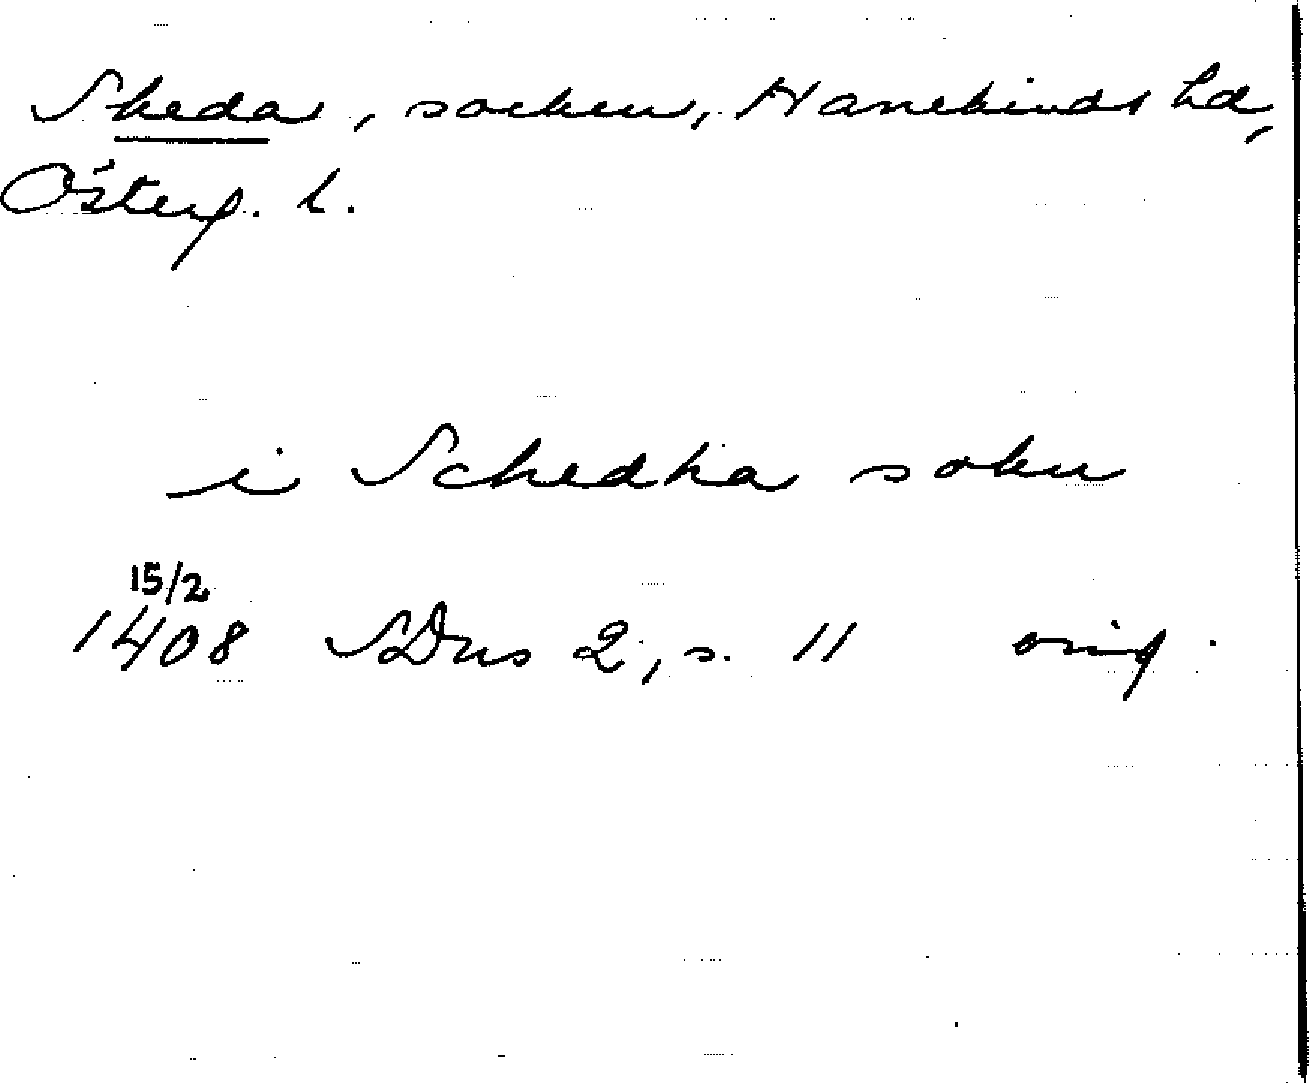 Skeda, socken, Hanekinds hd,
Österg. l.
i Schedha sokn
15/2
1408 SDns 2, s. 11 orig.